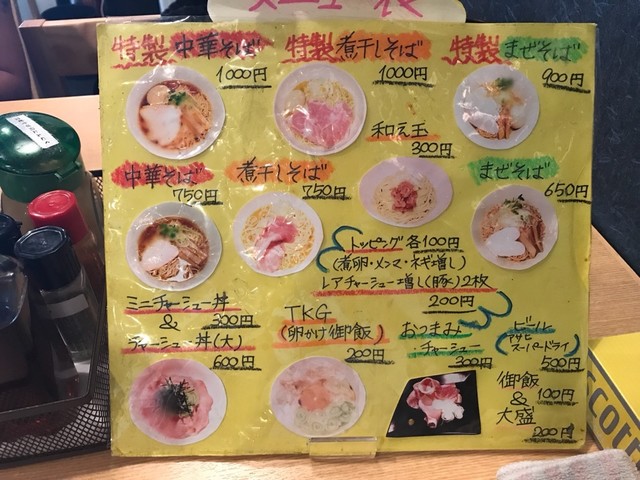 メニュー表
特製 中華そば
1000円
特製 煮干しそば
1000円
特製 まぜそば
900円
和え玉
300円
中華そば
750円
煮干しそば
750円
まぜそば
650円
トッピング 各100円
(煮卵・メンマ・ネギ増し)
レアチャーシュー増し(豚)2枚
200円
ミニチャーシュー丼
& 300円
チャーシュー丼(大)
600円
TKG
(卵かけ御飯)
200円
おつまみ
チャーシュー
300円
ビール
アサヒ
スーパードライ
500円
御飯
& 100円
大盛
200円